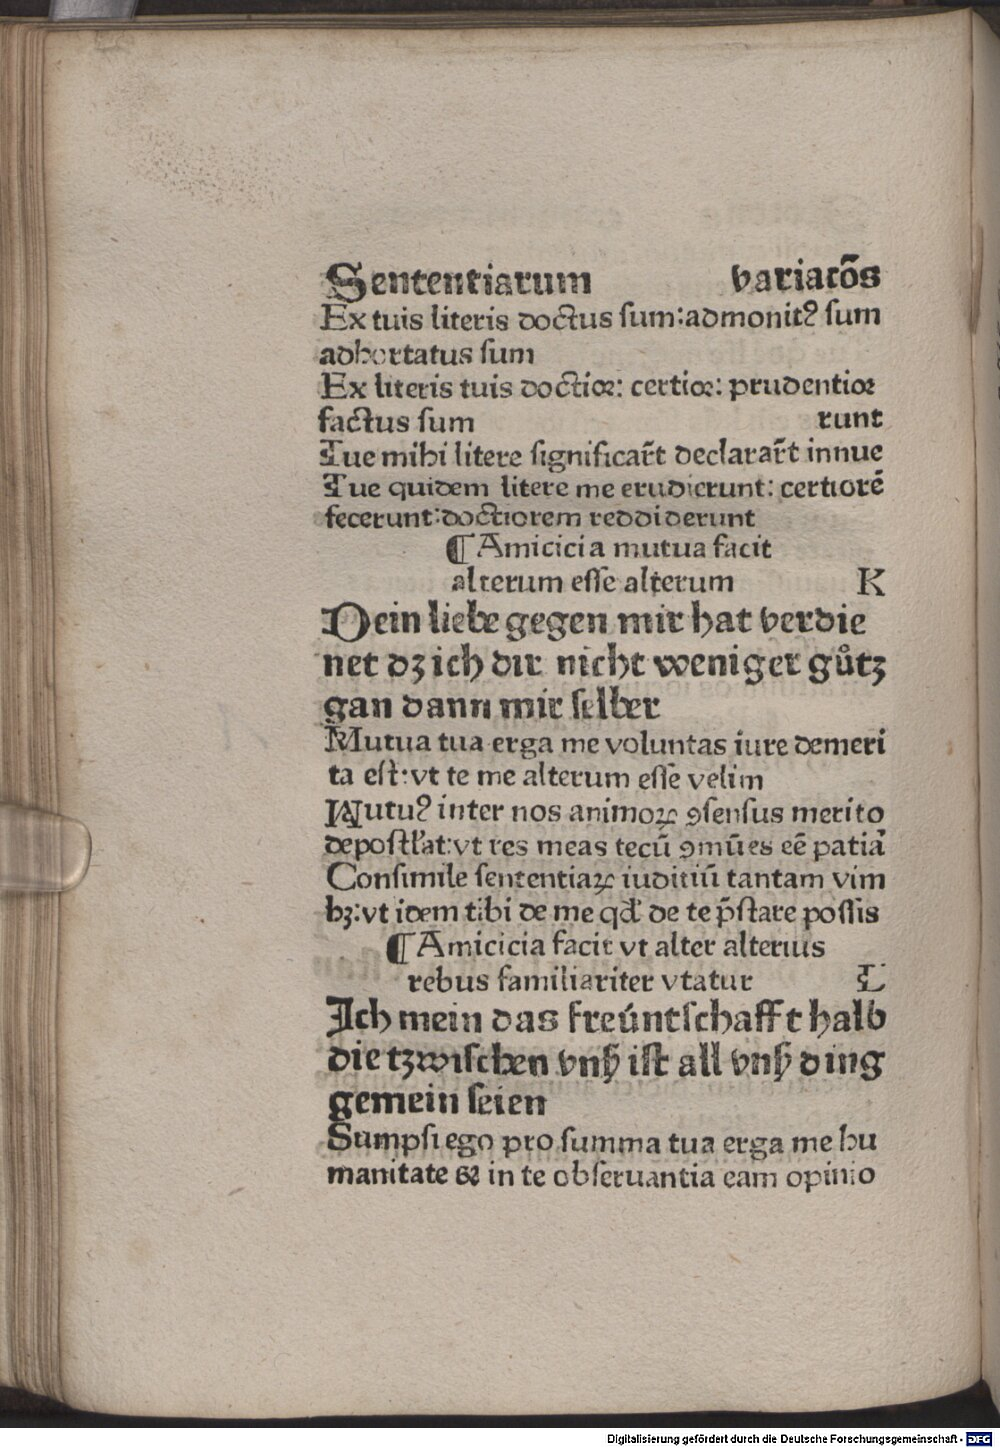 Sententiarum variacōs
Ex tuis literis doctus sum:admonitꝰ sum
adhortatus sum
Ex literis tuis doctior: certior: prudentior
factus sum runt
Tue mihi litere significar̃t declarar̃t innue
Tue quidem litere me erudierunt: certiorē
fecerunt:doctiorem reddiderunt
¶ Amicicia mutua facit
alterum esse alterum K
Dein liebe gegen mir hat verdie
net dꝫ ich dir nicht weniger gůtz
gan dann mir selber
Mutua tua erga me voluntas iure demeri
ta est:vt te me alterum esse velim
Mutuꝰ inter nos animoꝝ ꝯsensus merito
depostl̉at:vt res meas tecū ꝯmūes eē patiā
Consimile sententiaꝝ iuditiū tantam vim
hꝫ:vt idem tibi de me qd̉ de te p̄stare possis
¶ Amicicia facit vt alter alterius
rebus familiariter vtatur L
Ich mein das freúntschafft halb
die tzwischen vnß ist all vnß ding
gemein seien
Sumpsi ego pro summa tua erga me hu
manitate & in te obseruantia eam opinio
Digitalisierung gefördert durch die Deutsche Forschungsgemeinschaft - DFG